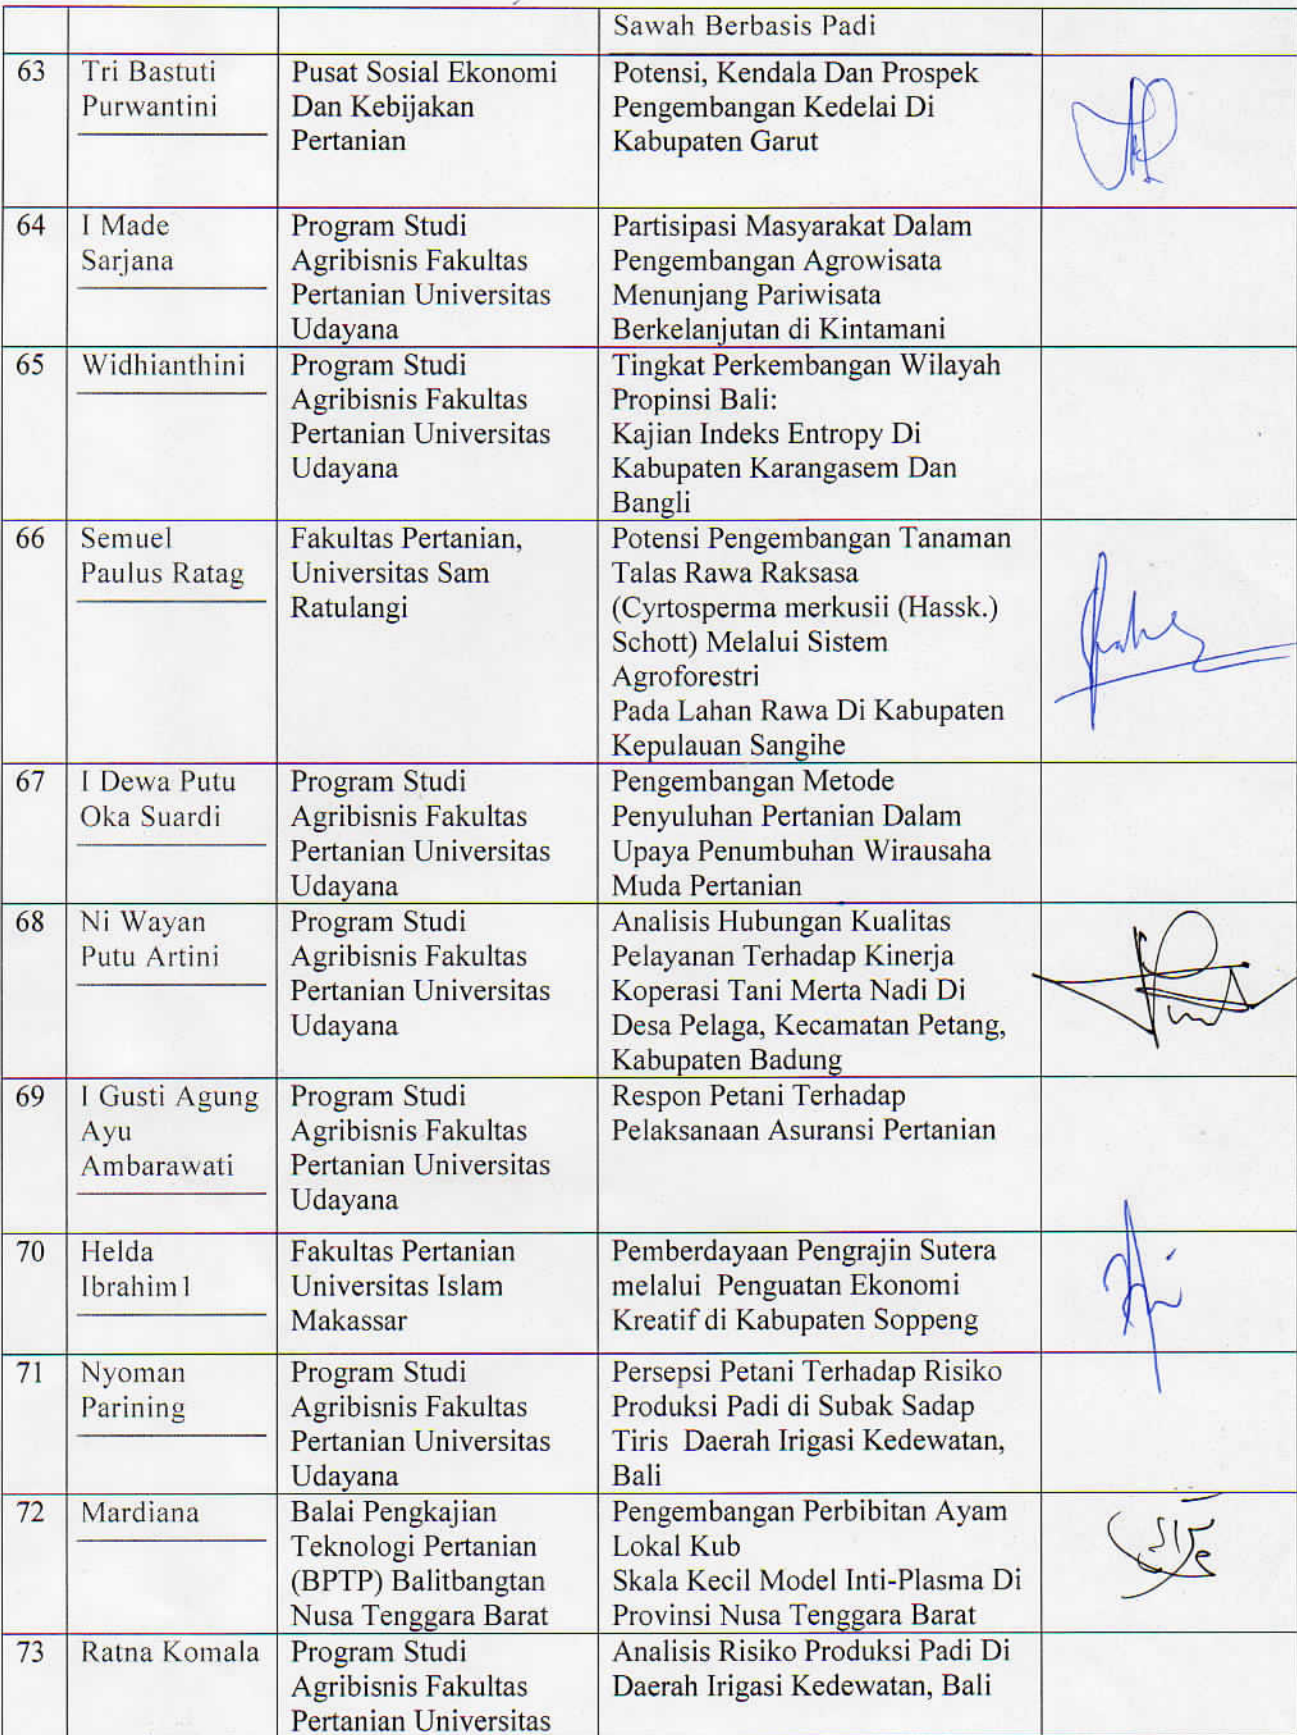 Sawah Berbasis Padi
63 Tri Bastuti Purwantini
Pusat Sosial Ekonomi
Dan Kebijakan
Pertanian
Potensi, Kendala Dan Prospek
Pengembangan Kedelai Di
Kabupaten Garut
64 I Made
Sarjana
Program Studi
Agribisnis Fakultas
Pertanian Universitas
Udayana
Partisipasi Masyarakat Dalam
Pengembangan Agrowisata
Menunjang Pariwisata
Berkelanjutan di Kintamani
65 Widhianthini
Program Studi
Agribisnis Fakultas
Pertanian Universitas
Udayana
Tingkat Perkembangan Wilayah
Propinsi Bali:
Kajian Indeks Entropy Di
Kabupaten Karangasem Dan
Bangli
66 Semuel
Paulus Ratag
Fakultas Pertanian,
Universitas Sam
Ratulangi
Potensi Pengembangan Tanaman
Talas Rawa Raksasa
(Cyrtosperma merkusii (Hassk.)
Schott) Melalui Sistem
Agroforestri
Pada Lahan Rawa Di Kabupaten
Kepulauan Sangihe
67 I Dewa Putu
Oka Suardi
Program Studi
Agribisnis Fakultas
Pertanian Universitas
Udayana
Pengembangan Metode
Penyuluhan Pertanian Dalam
Upaya Penumbuhan Wirausaha
Muda Pertanian
68 Ni Wayan
Putu Artini
Program Studi
Agribisnis Fakultas
Pertanian Universitas
Udayana
Analisis Hubungan Kualitas
Pelayanan Terhadap Kinerja
Koperasi Tani Merta Nadi Di
Desa Pelaga, Kecamatan Petang,
Kabupaten Badung
69 I Gusti Agung
Ayu
Ambarawati
Program Studi
Agribisnis Fakultas
Pertanian Universitas
Udayana
Respon Petani Terhadap
Pelaksanaan Asuransi Pertanian
70 Helda
Ibrahim1
Fakultas Pertanian
Universitas Islam
Makassar
Pemberdayaan Pengrajin Sutera
melalui Penguatan Ekonomi
Kreatif di Kabupaten Soppeng
71 Nyoman
Parining
Program Studi
Agribisnis Fakultas
Pertanian Universitas
Udayana
Persepsi Petani Terhadap Risiko
Produksi Padi di Subak Sadap
Tiris Daerah Irigasi Kedewatan,
Bali
72 Mardiana
Balai Pengkajian
Teknologi Pertanian
(BPTP) Balitbangtan
Nusa Tenggara Barat
Pengembangan Perbibitan Ayam
Lokal Kub
Skala Kecil Model Inti-Plasma Di
Provinsi Nusa Tenggara Barat
73 Ratna Komala
Program Studi
Agribisnis Fakultas
Pertanian Universitas
Analisis Risiko Produksi Padi Di
Daerah Irigasi Kedewatan, Bali